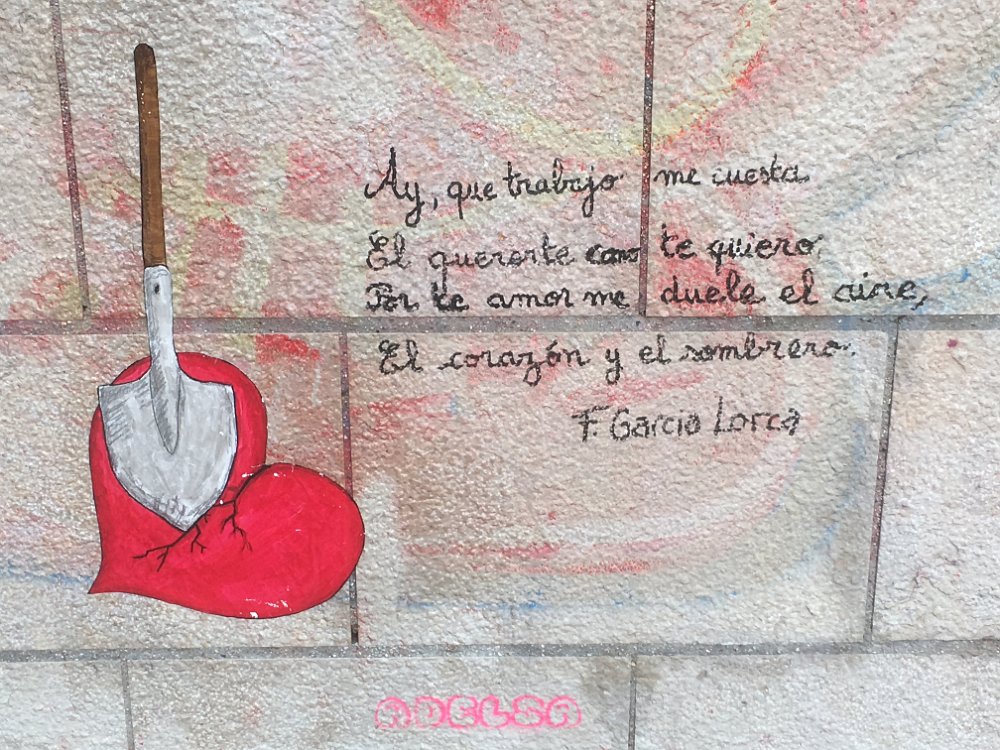 Ay, que trabajo me cuesta
El quererte como te quiero.
Por te amor me duele el aire,
El corazón y el sombrero.
F. Garcia Lorca
ADELSA